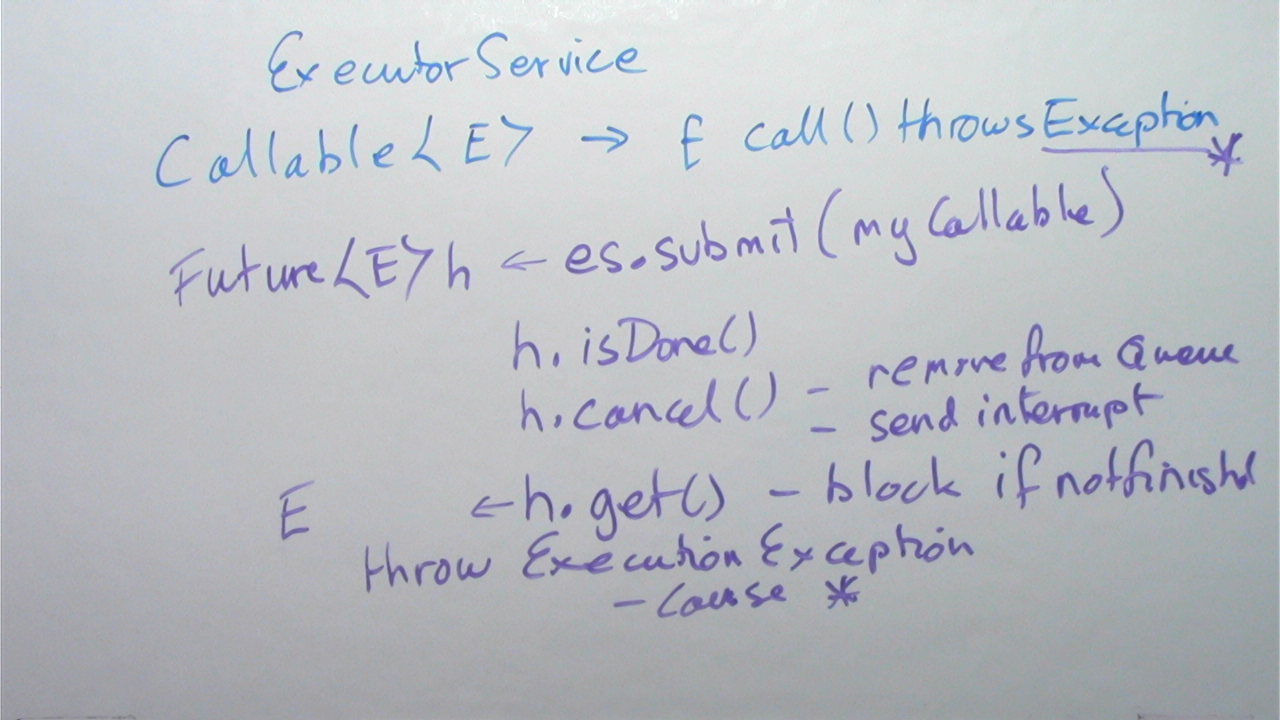 ExecutorService
Callable<E> → E call() throws Exception *
Future<E> h ← es.submit(myCallable)
h.isDone()
h.cancel() - remove from Queue
- send interrupt
E ← h.get() - block if not finished
throw ExecutionException
- cause *